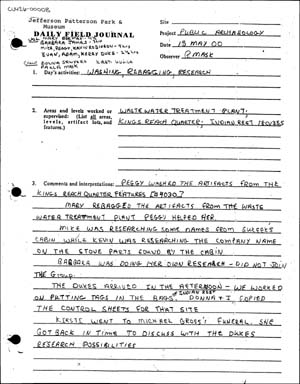 Jefferson Patterson Park &
Museum
DAILY FIELD JOURNAL
Site
Project PUBLIC ARCHAEOLOGY
Date 13 MAY 00
Observer P. MASK
1. Day's activities: WASHING, REBAGGING, RESEARCH
2. Areas and levels worked or
supervised: (List all areas,
levels, artifact lots, and
features.)
WASTE WATER TREATMENT PLANT;
KINGS REACH QUARTER; INDIAN REST
3. Comments and interpretations: PEGGY WASHED THE ARTIFACTS FROM THE
KINGS REACH QUARTER FEATURES
MARY REBAGGED THE ARTIFACTS FROM THE WASTE
WATER TREATMENT PLANT PEGGY HELPED HER.
MIKE WAS RESEARCHING SOME NAMES FROM
CABIN WHILE KEVIN WAS RESEARCHING THE COMPANY NAME
ON THE STOVE PARTS FOUND BY THE CABIN
BARBARA WAS DOING HER OWN RESEARCH - DID NOT JOIN
THE GROUP.
THE DUKES ARRIVED IN THE AFTERNOON - WE WORKED
ON PUTTING TAGS IN THE INDIAN REST BAGS. DONNA & I COPIED
THE CONTROL SHEETS FOR THAT SITE
KIRSTI WENT TO MICHAEL GROSS'S FUNERAL. SHE
GOT BACK IN TIME TO DISCUSS WITH THE DUKES
RESEARCH POSSIBILITIES